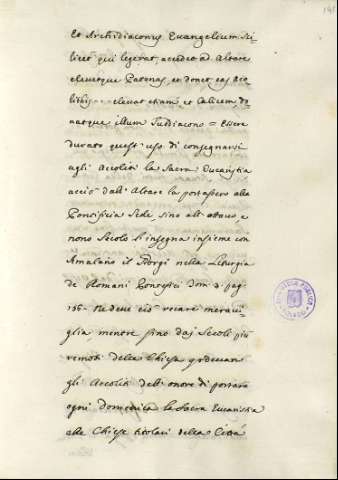 Et Archidiaconus Evangelium sci-
licet qui legerat, accedet ad Altare
elevetque Patenas, et donet eas Aco-
lithis = elevat etiam et Calicem, do-
natque illum Subdiacono = Essere
durato quest' uso di consegnarsi
agli Accoliti la Sacra Eucaristia
acciò dall' Altare la portassero alla
Pontificia Sede sino all' ottavo, e
nono Secolo l'insegna insieme con
Amalario il Giorgi nella Liturgia
de Romani Pontefici Tom. 3. pag.
156. Ne deve ciò recare meravi-
glia, mentre fino dai Secoli più
remoti della Chiesa godevano
gli Accoliti dell' onore di portare
ogni domenica la Sacra Eucaristia
alle Chiese titolari della Città